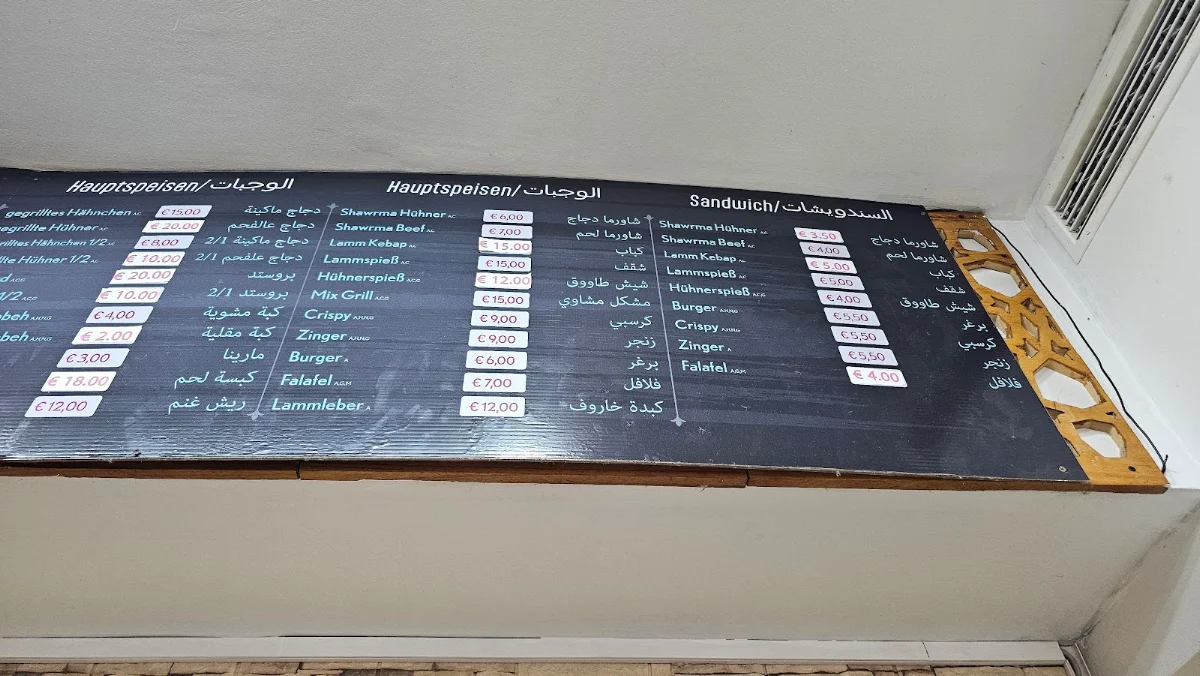 Hauptspeisen/الوجبات
gegrilltes Hähnchen €15,00 دجاج ماكينة
Hühner €20.00 دجاج عالفحم
Hähnchen 1/2 €8,00 دجاج ماكينة 2/1
Hühner 1/2 €10.00 دجاج علفحم 2/1
€20.00 بروستد
1/2 €10.00 بروستد 2/1
€4,00 كبة مشوية
€2.00 كبة مقلية
€3,00 مارينا
€18.00 كبسة لحم
€12,00 ريش غنم
Hauptspeisen/الوجبات
Shawrma Hühner €6,00 شاورما دجاج
Shawrma Beef €7,00 شاورما لحم
Lamm Kebap €15.00 كباب
Lammspieß €15,00 شقف
Hühnerspieß €12.00 شيش طاووق
Mix Grill €15,00 مشكل مشاوي
Crispy €9,00 كرسبي
Zinger €9,00 زنجر
Burger €6,00 برغر
Falafel €7,00 فلافل
Lammleber €12,00 كبدة خاروف
Sandwich/السندويشات
Shawrma Hühner €3.50 شاورما دجاج
Shawrma Beef €4,00 شاورما لحم
Lamm Kebap €5.00 كباب
Lammspieß €5,00 شقف
Hühnerspieß €4,00 شيش طاووق
Burger €5,50 برغر
Crispy €5,50 كرسبي
Zinger €5,50 زنجر
Falafel €4.00 فلافل